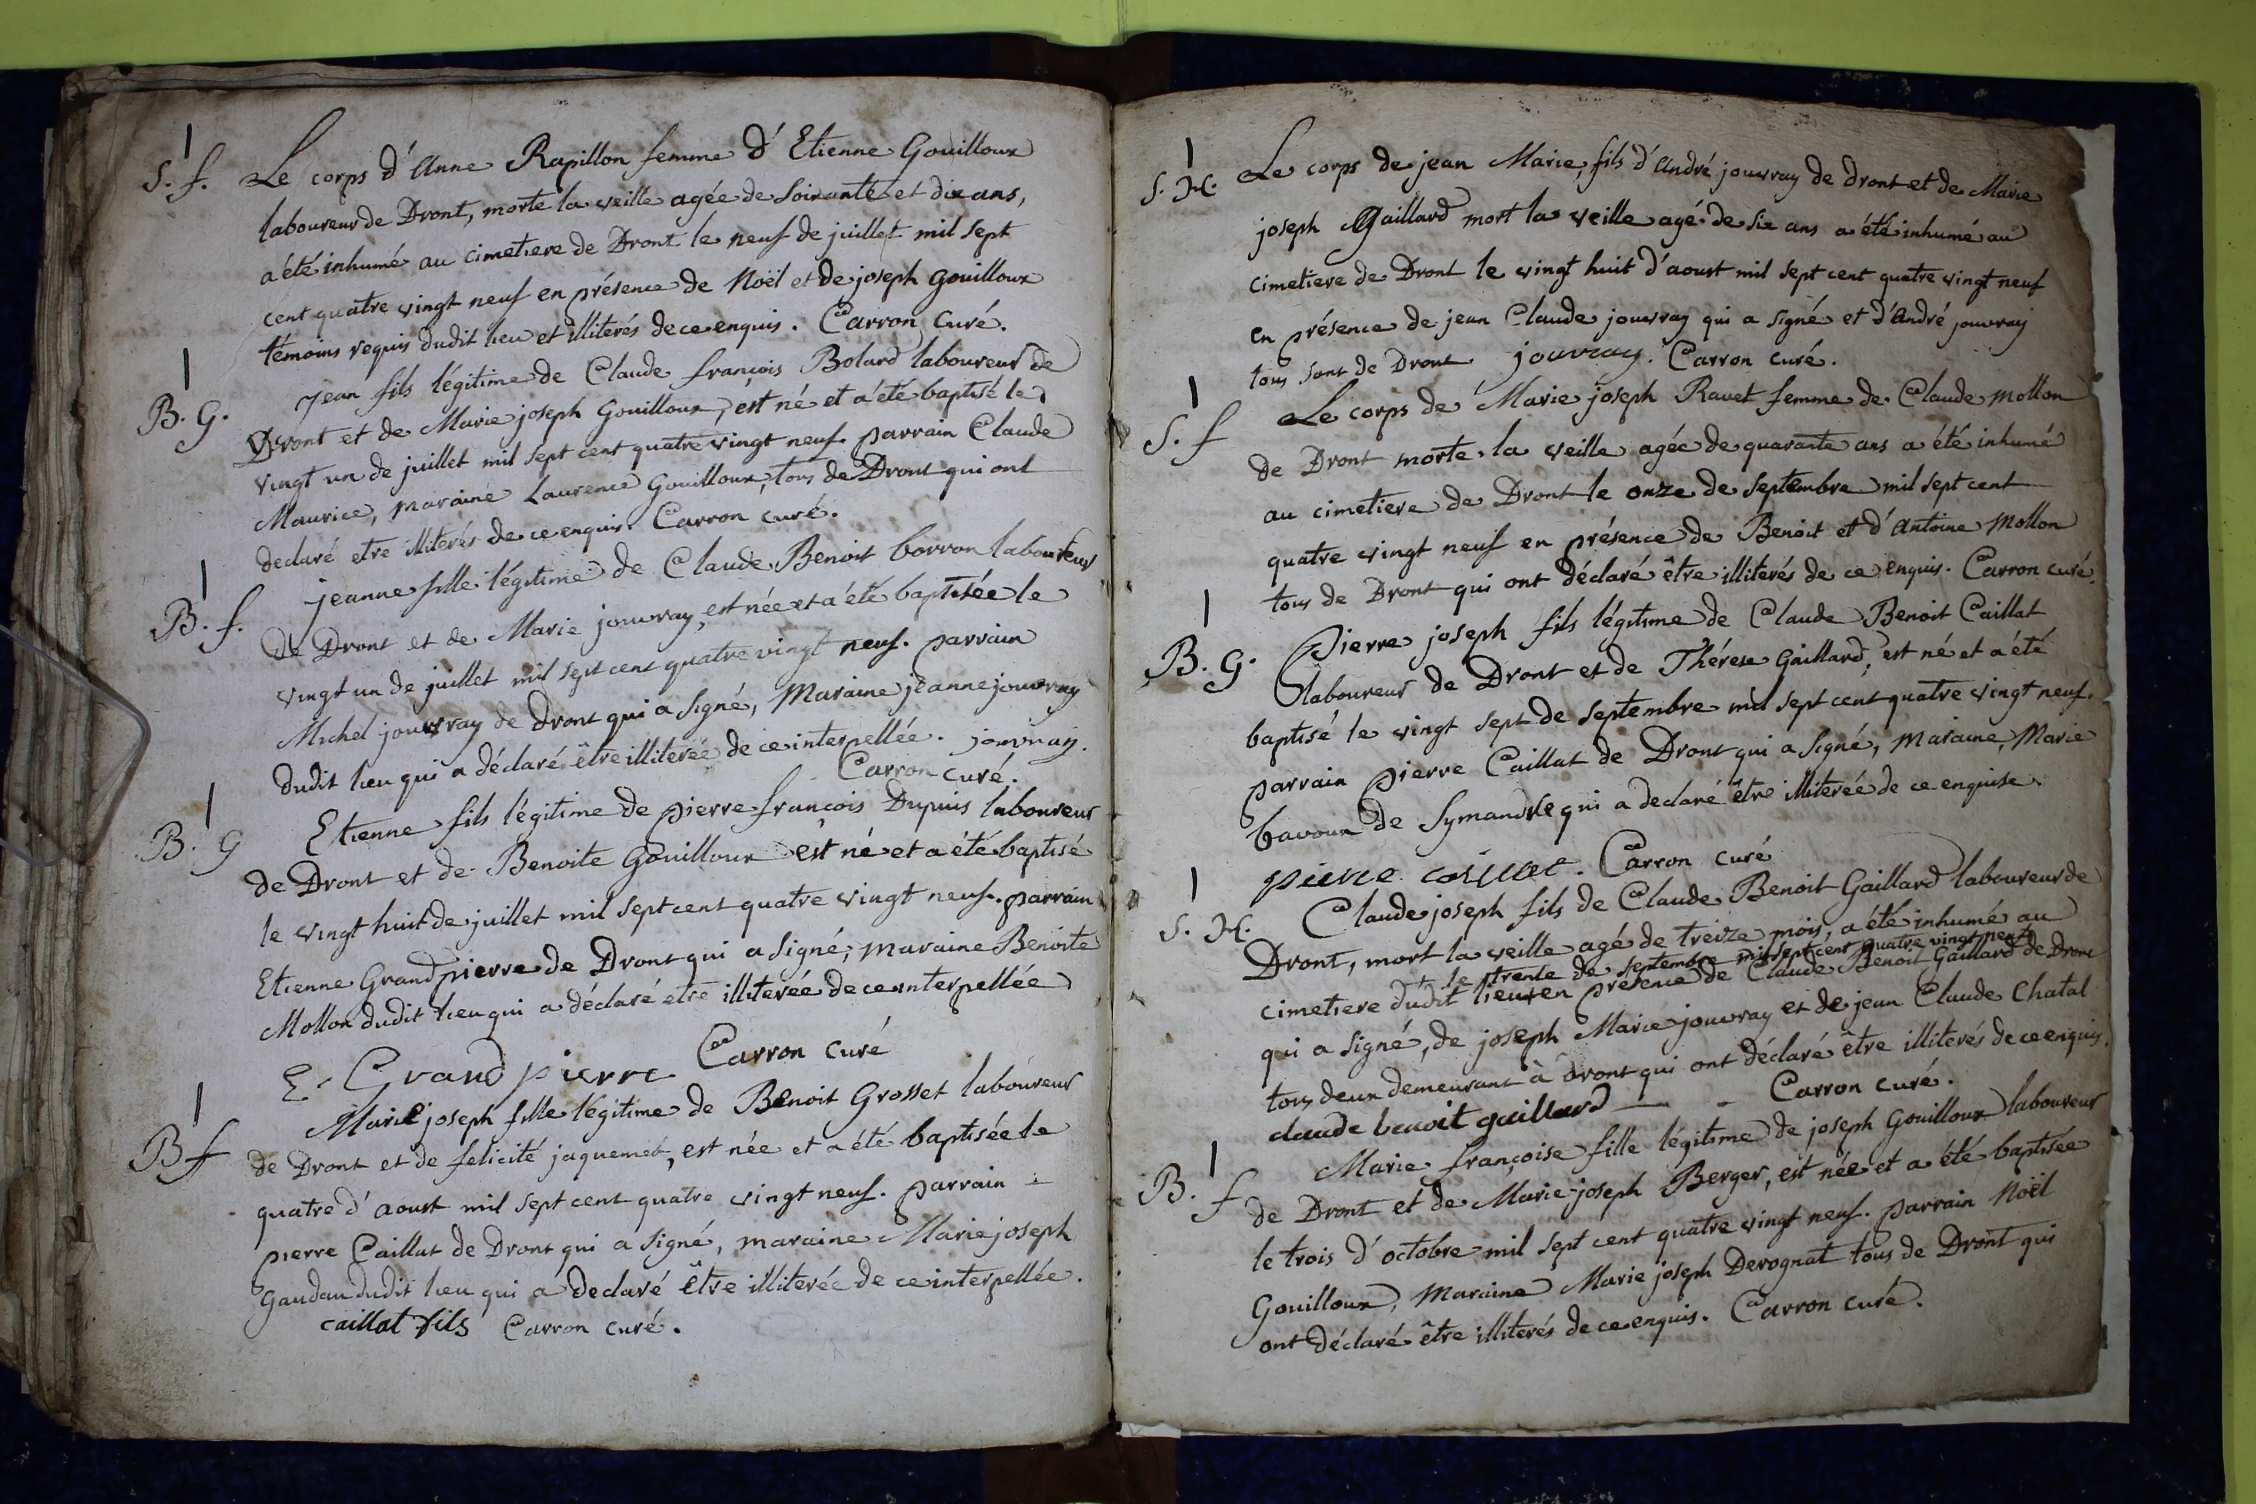 S. f. Le corps d'Anne Rapillon femme d'Etienne Gouilloux
laboureur de Dront, morte la veille agée de soixante et dix ans,
a été inhumé au cimetiere de Dront le neuf de juillet mil sept
cent quatre vingt neuf en présence de Noël et de joseph Gouilloux
témoins requis dudit lieu et illiterés de ce enquis. Carron Curé.
B. G. Jean fils légitime de Claude françois Bolard laboureur de
Dront et de Marie joseph Gouilloux, est né et a été baptisé le
vingt un de juillet mil sept cent quatre vingt neuf. parrain Claude
Maurice, maraine Laurence Gouilloux, tous de Dront qui ont
declaré etre illiterés de ce enquis. Carron curé.
B. f. jeanne fille légitime de Claude Benoit borron laboureur
de Dront et de Marie jouvray, est née et a été baptisée le
vingt un de juillet mil sept cent quatre vingt neuf. parrain
Michel jouvray de Dront qui a signé, Maraine jeanne jouvray
dudit lieu qui a déclaré être illiterée de ce interpellée. jouvray.
Carron curé.
B. G Etienne fils légitime de pierre françois Dupuis laboureur
de Dront et de Benoite Gouilloux est né et a été baptisé
le vingt huit de juillet mil sept cent quatre vingt neuf. parrain
Etienne Grandpierre de Dront qui a signé, maraine Benoite
Mollon dudit lieu qui a déclaré etre illiterée de ce interpellée
E. Grand pierre Carron Curé
B f Marie joseph fille légitime de Benoit Grosset laboureur
de Dront et de felicité jaquemet, est née et a été baptisée le
quatre d'aoust mil sept cent quatre vingt neuf. parrain
pierre Caillat de Dront qui a signé, maraine Marie joseph
Gaudan dudit lieu qui a declaré être illiterée de ce interpellée.
caillat fils Carron curé.
S. H. Le corps de jean Marie, fils d'André jouvray de dront et de Marie
joseph Gaillard mort la veille agé de six ans a été inhumé au
cimetiere de Dront le vingt huit d'aoust mil sept cent quatre vingt neuf
en présence de jean Claude jouvray qui a signé et d'André jouvray
tous sont de Dront jouvray. Carron curé.
S. f Le corps de Marie joseph Ravet femme de Claude Mollon
de Dront morte la veille agée de quarante ans a été inhumé
au cimetiere de Dront le onze de septembre mil sept cent
quatre vingt neuf en présence de Benoit et d'Antoine Mollon
tous de Dront qui ont déclaré être illiterés de ce enquis. Carron curé.
B. G. Pierre joseph fils légitime de Claude Benoit Caillat
laboureur de Dront et de Thérese Gaillard, est né et a été
baptisé le vingt sept de septembre mil sept cent quatre vingt neuf.
parrain pierre Caillat de Dront qui a signé, maraine, Marie
bavoux de Symandre qui a declaré être illiterée de ce enquise.
pierre caillat. Carron curé
S. H. Claude joseph fils de Claude Benoit Gaillard laboureur de
Dront, mort la veille agé de treize mois, a été inhumé au
+ le trente de septembre mil sept cent quatre vingt neuf
cimetiere dudit lieu + en présence de Claude Benoit Gaillard de Dront
qui a signé, de joseph Marie jouvray et de jean Claude Chatal
tous deux demeurant à Dront qui ont déclaré être illiterés de ce enquis.
claude benoit gaillard Carron curé.
B. f Marie françoise fille légitime de joseph Gouilloux laboureur
de Dront et de Marie joseph Berger, est née et a été baptisée
le trois d'octobre mil sept cent quatre vingt neuf. parrain Noël
Gouilloux, Maraine Marie joseph Derognat tous de Dront qui
ont déclaré être illiterés de ce enquis. Carron curé.